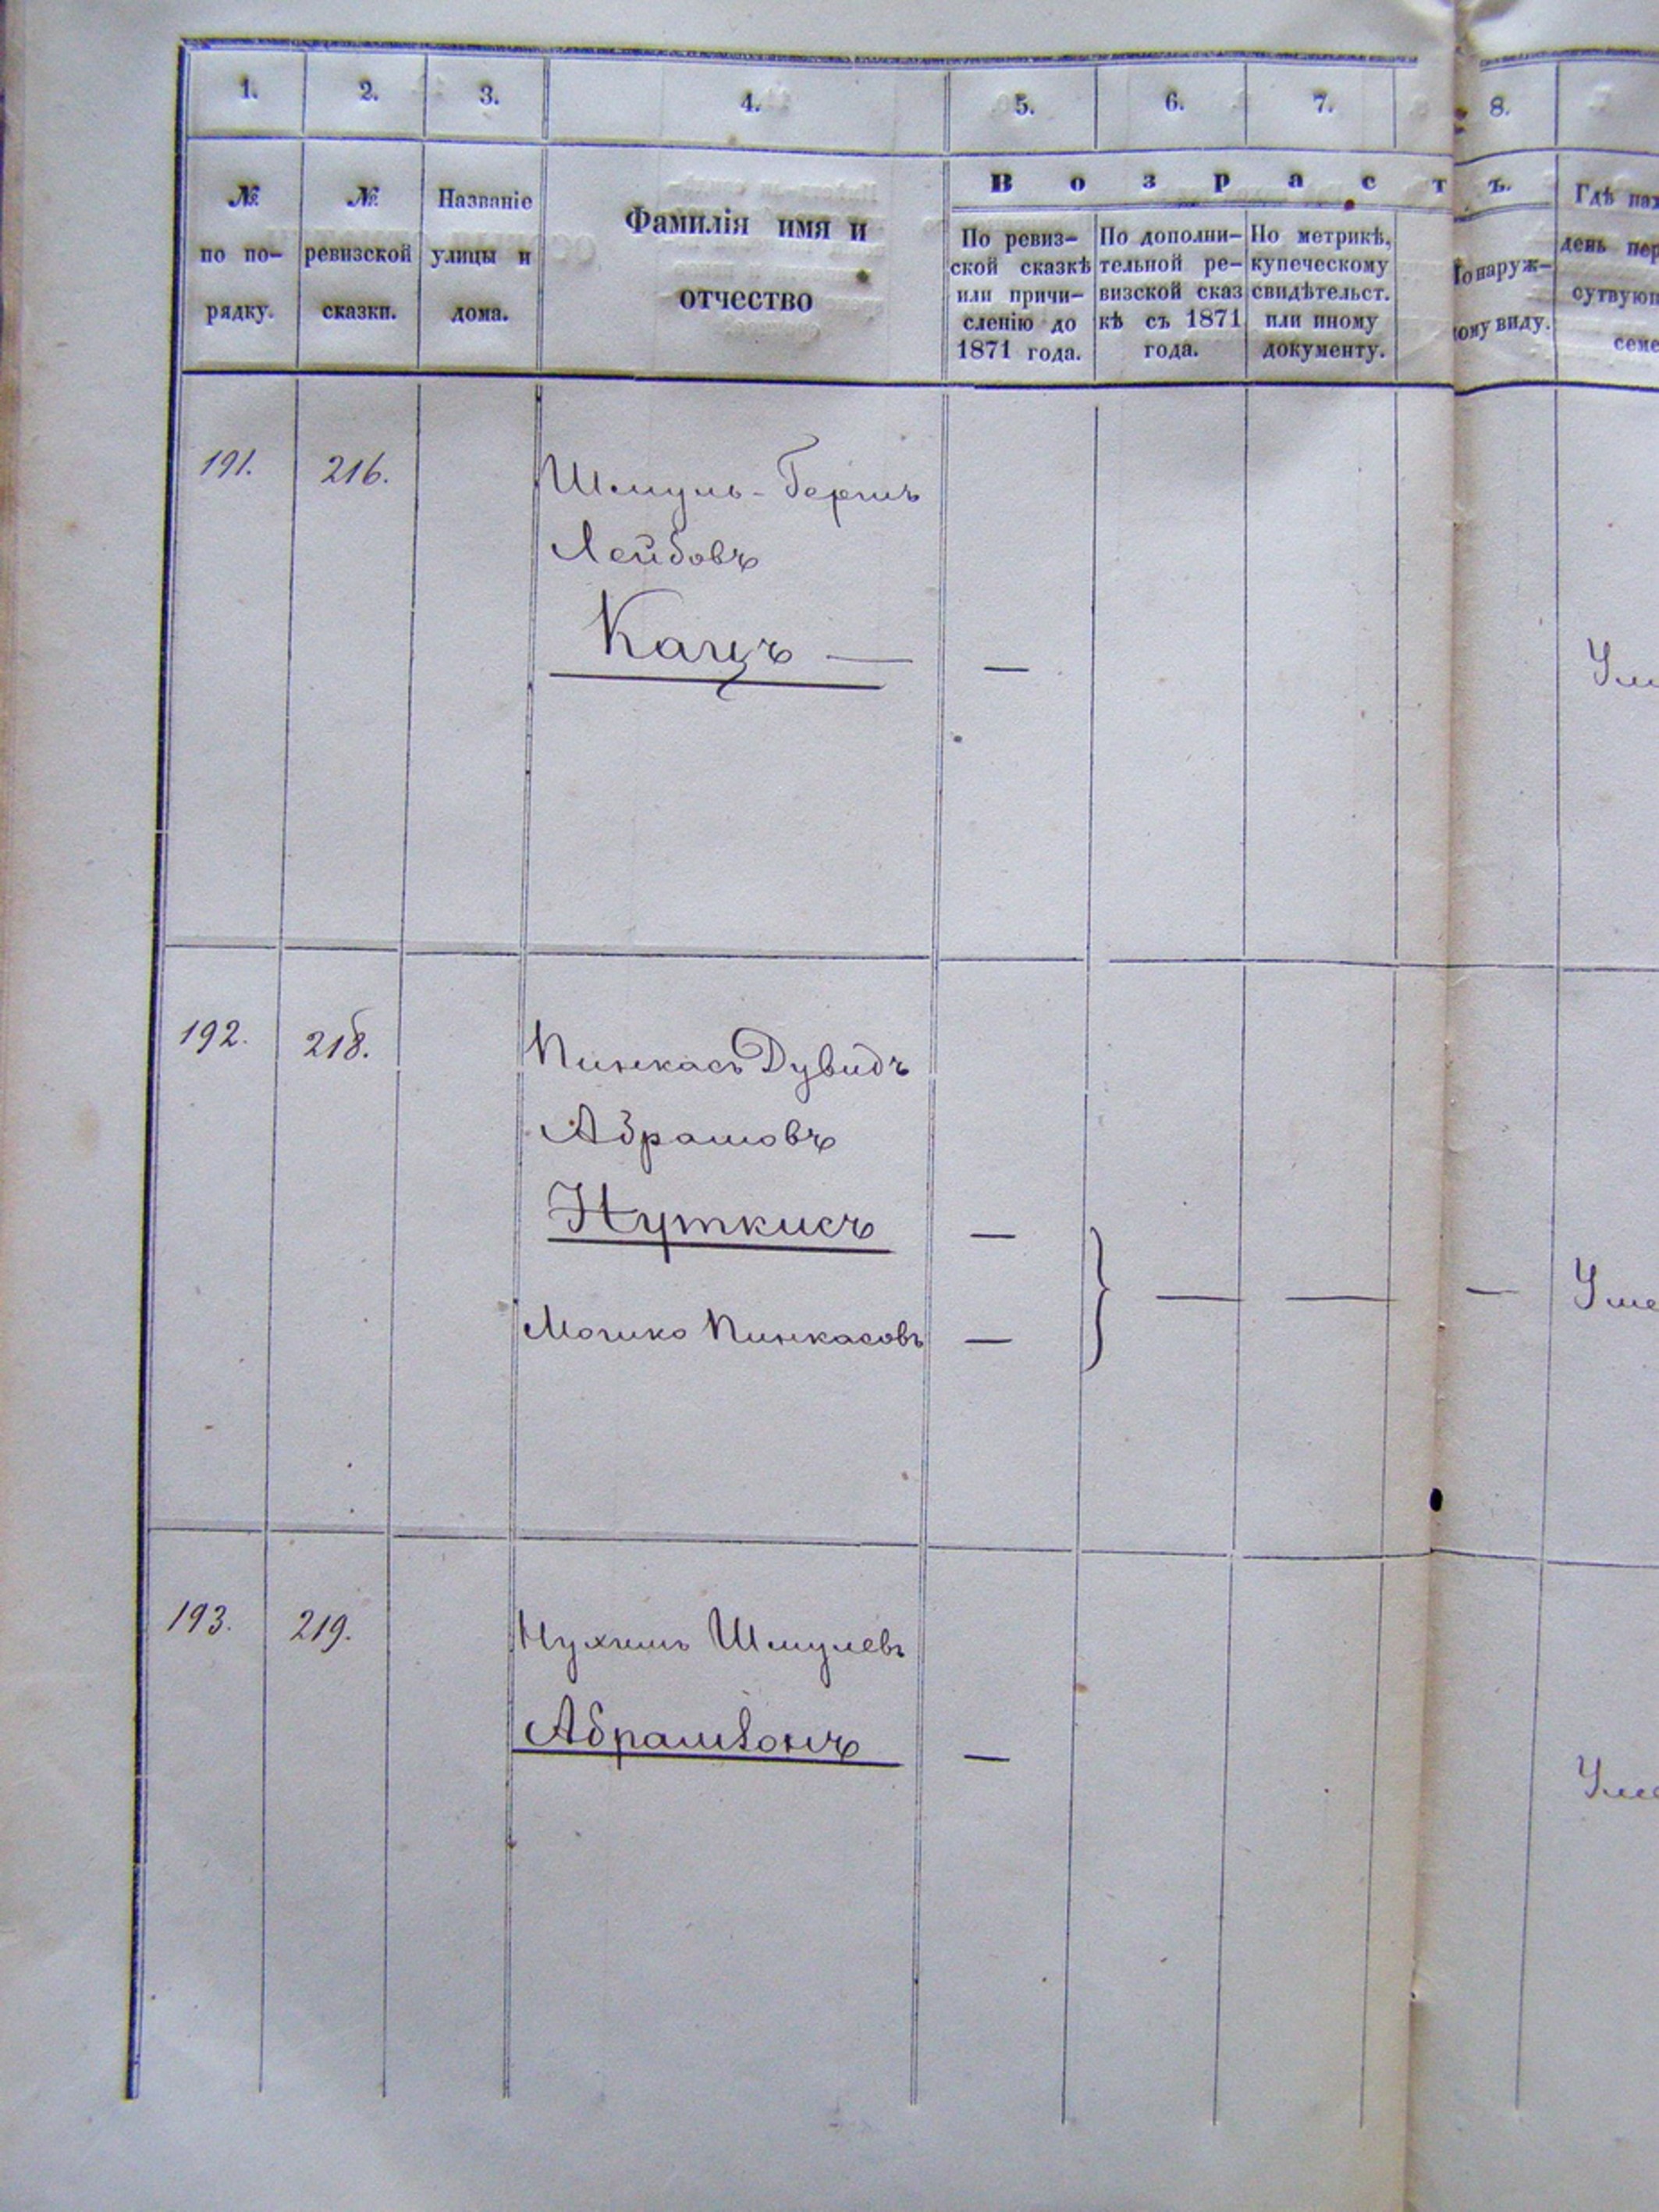 1. 2. 3. 4. 5. 6. 7. 8.
№ по по-рядку.
№ ревизской сказки.
Названіе улицы и дома.
Фамилія имя и отчество
Возрастъ.
По ревиз-
ской сказкѣ
или причи-
сленію до
1871 года.
По дополни-
тельной ре-
визской сказ
кѣ съ 1871
года.
По метрикѣ,
купеческому
свидѣтельст.
или иному
документу.
По наруж-
ному виду.
Гдѣ нах
день пер
сутвующ
семе
191. 216. Шмуль-Гершъ
Лейбовъ
Кацъ — —
192. 218. Пинкасъ Дувидъ
Абрамовъ
Нуткисъ —
— — — Уме
Мошко Пинкасовъ —
193. 219. Нухимъ Шмулевъ
Абрамсонъ —
Уме